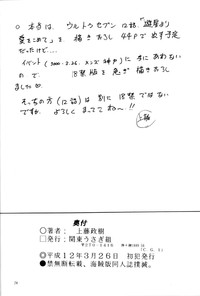 ○ 本書は、ウルトラセブン 12話、「遊星より
愛をこめて」を、描きおろし 44Pで出す予定
だったけど…
イベント(2000.3.26. メンズ 神戸)に、まにあわない
ので、18禁版を急ぎ描きおろし
ました
そっちの方(12話)は別に18禁ではない
ですが、よろしくまってて ね〜!!
上藤
奥付
○著者:上藤政樹
○発行:関東うさぎ組
◎平成12年3月26日 初犯発行
◉禁無断転載、海賊版同人誌撲滅。